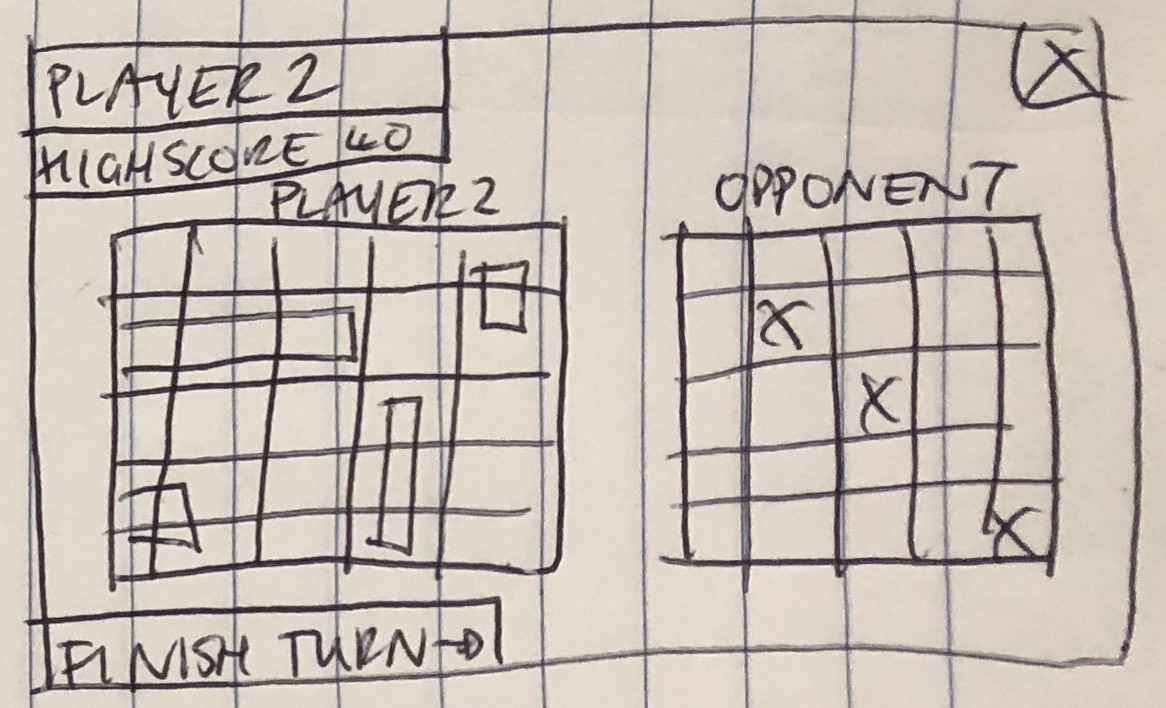 PLAYER 2
X
HIGHSCORE 40
PLAYER 2
OPPONENT
X
X
X
FINISH TURN→